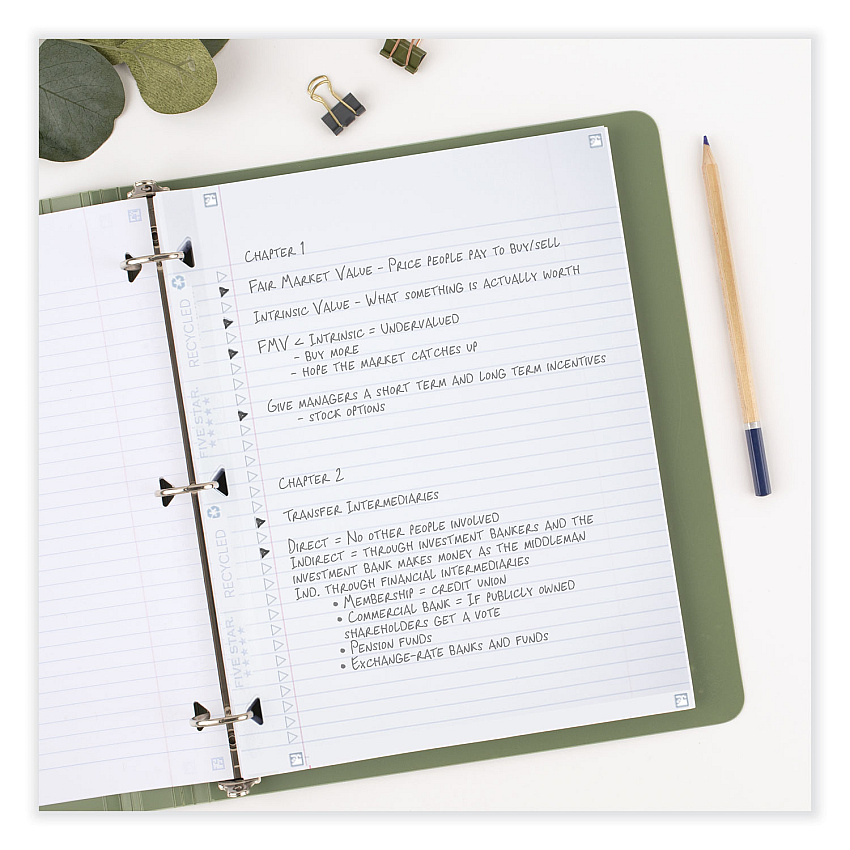 Chapter 1
Fair Market Value - Price people pay to buy/sell
Intrinsic Value - What something is actually worth
FMV < Intrinsic = Undervalued
- buy more
- hope the market catches up
Give managers a short term and long term incentives
- stock options
Chapter 2
Transfer Intermediaries
Direct = No other people involved
Indirect = through investment bankers and the
investment bank makes money as the middleman
Ind. through financial intermediaries
• Membership = credit union
• Commercial bank = If publicly owned
shareholders get a vote
• Pension funds
• Exchange-rate banks and funds
RECYCLED
FIVE STAR
RECYCLED
FIVE STAR